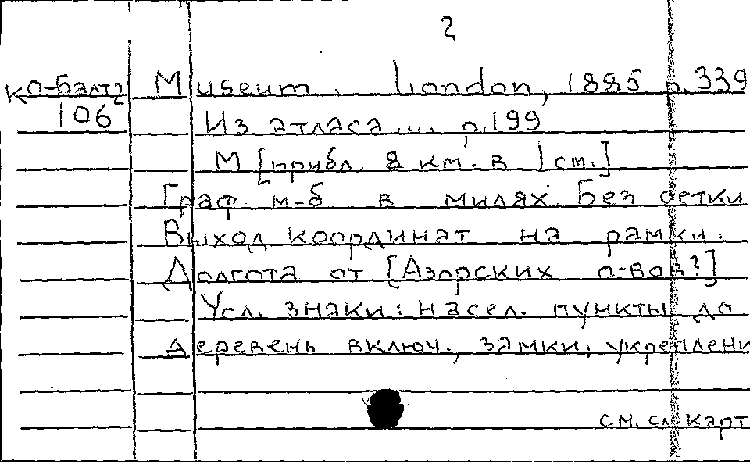 2
Ко-Балт2 Museum. London, 1885 p.339
106 Из атласа... p.199
М [прибл. 8 км. в 1см.]
Граф. м-б в милях. Без сетки
Выход координат на рамки.
Долгота от [Азорских о-вов?]
Усл. знаки: насел. пункты до
деревень включ., замки, укреплени
см. сл. карт